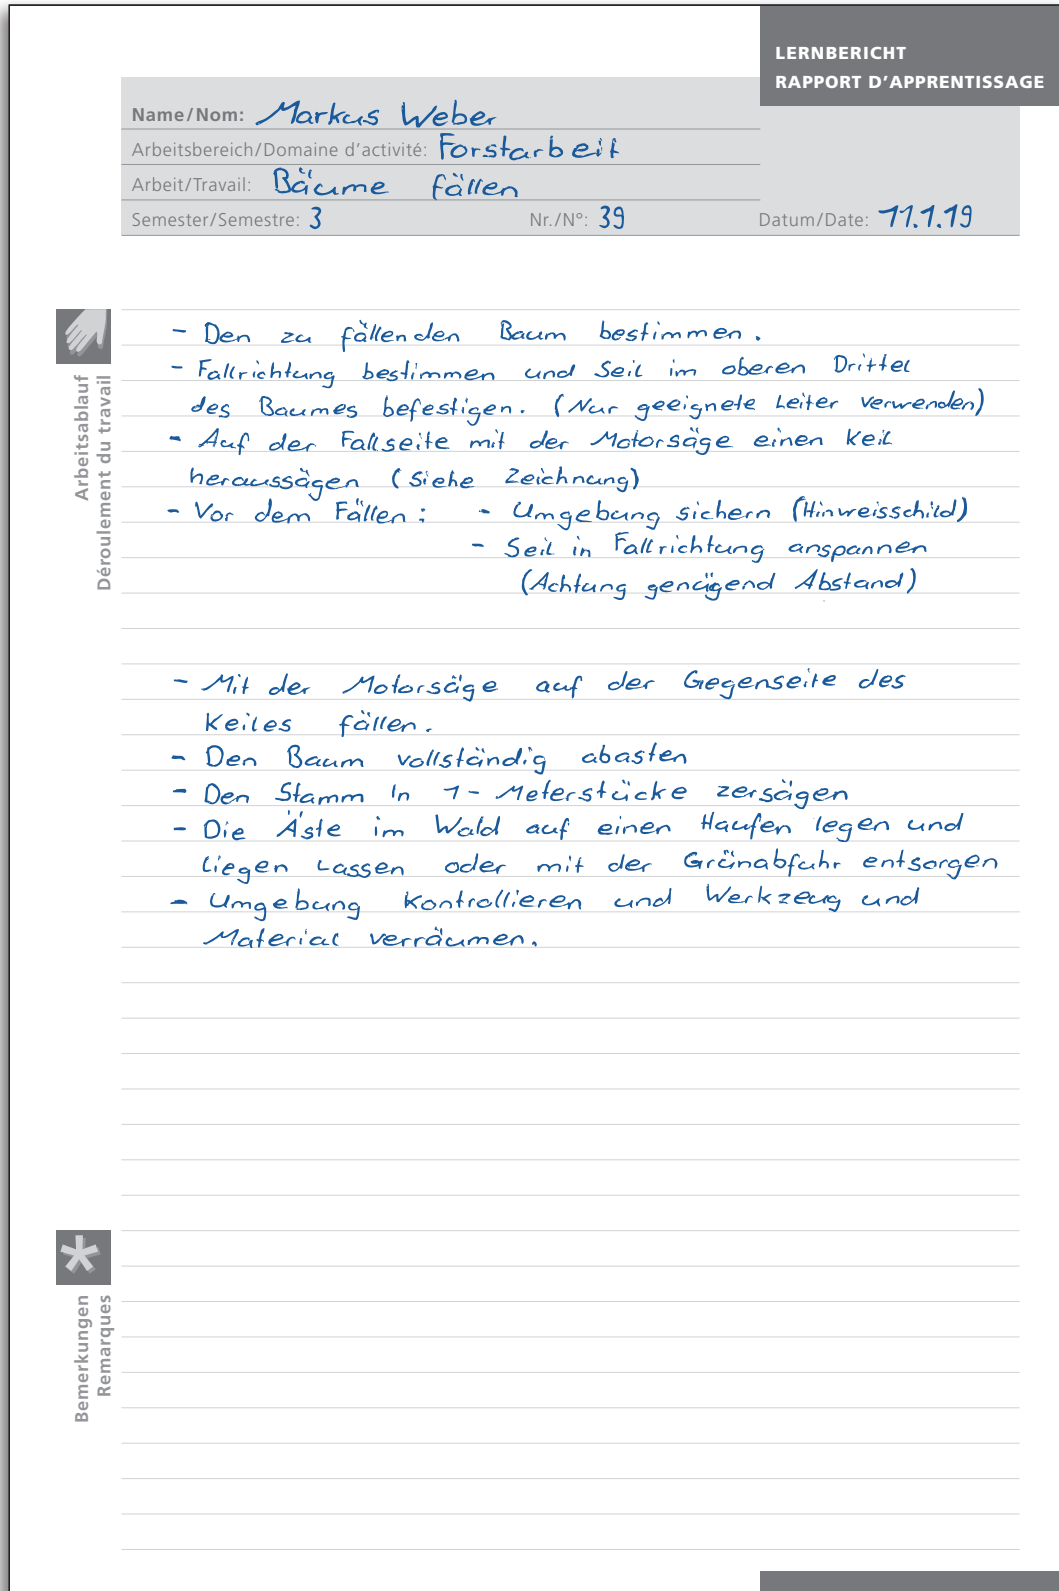 LERNBERICHT
RAPPORT D'APPRENTISSAGE
Name/Nom: Markus Weber
Arbeitsbereich/Domaine d'activité: Forstarbeit
Arbeit/Travail: Bäume fällen
Semester/Semestre: 3 Nr./N°: 39 Datum/Date: 11.1.19
Arbeitsablauf
Déroulement du travail
- Den zu fällenden Baum bestimmen.
- Fallrichtung bestimmen und Seil im oberen Drittel
des Baumes befestigen. (Nur geeignete Leiter verwenden)
- Auf der Fallseite mit der Motorsäge einen Keil
heraussägen (Siehe Zeichnung)
- Vor dem Fällen: - Umgebung sichern (Hinweisschild)
- Seil in Fallrichtung anspannen
(Achtung genügend Abstand)
- Mit der Motorsäge auf der Gegenseite des
Keiles fällen.
- Den Baum vollständig abasten
- Den Stamm In 1-Meterstücke zersägen
- Die Äste im Wald auf einen Haufen legen und
liegen Lassen oder mit der Grünabfuhr entsorgen
- Umgebung Kontrollieren und Werkzeug und
Material verräumen.
Bemerkungen
Remarques